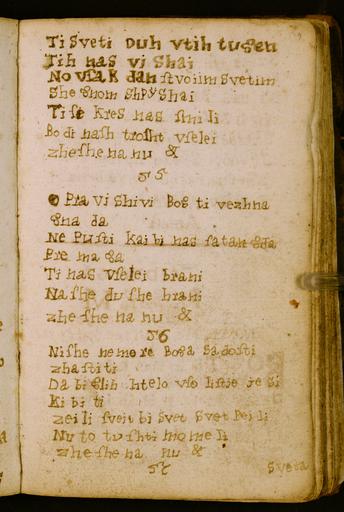 Ti Sveti Duh vtih tugen
Tih nas vi Shai
No vsak dan stvoiim Svetim
She gnom Shpy Shai
Ti si kres nas smili
Bo di nash trosht vselei
zheshe na nu &
55
O Pra vi Shivi Bog ti vezhna
gna da
Ne Pusti kai bi nas satan gda
Pre ma ga
Ti nas vselei brani
Nashe du she hrani
zhe she na nu &
56
Nishe ne more Boga Sadosti
zhastiti
Da bi glih htelo vso listje je Si
Ki bi ti
zeili sveit bi Svet Svet Pei li
Nu to tu shti mo me li
zhe she na nu &
57
Sveta